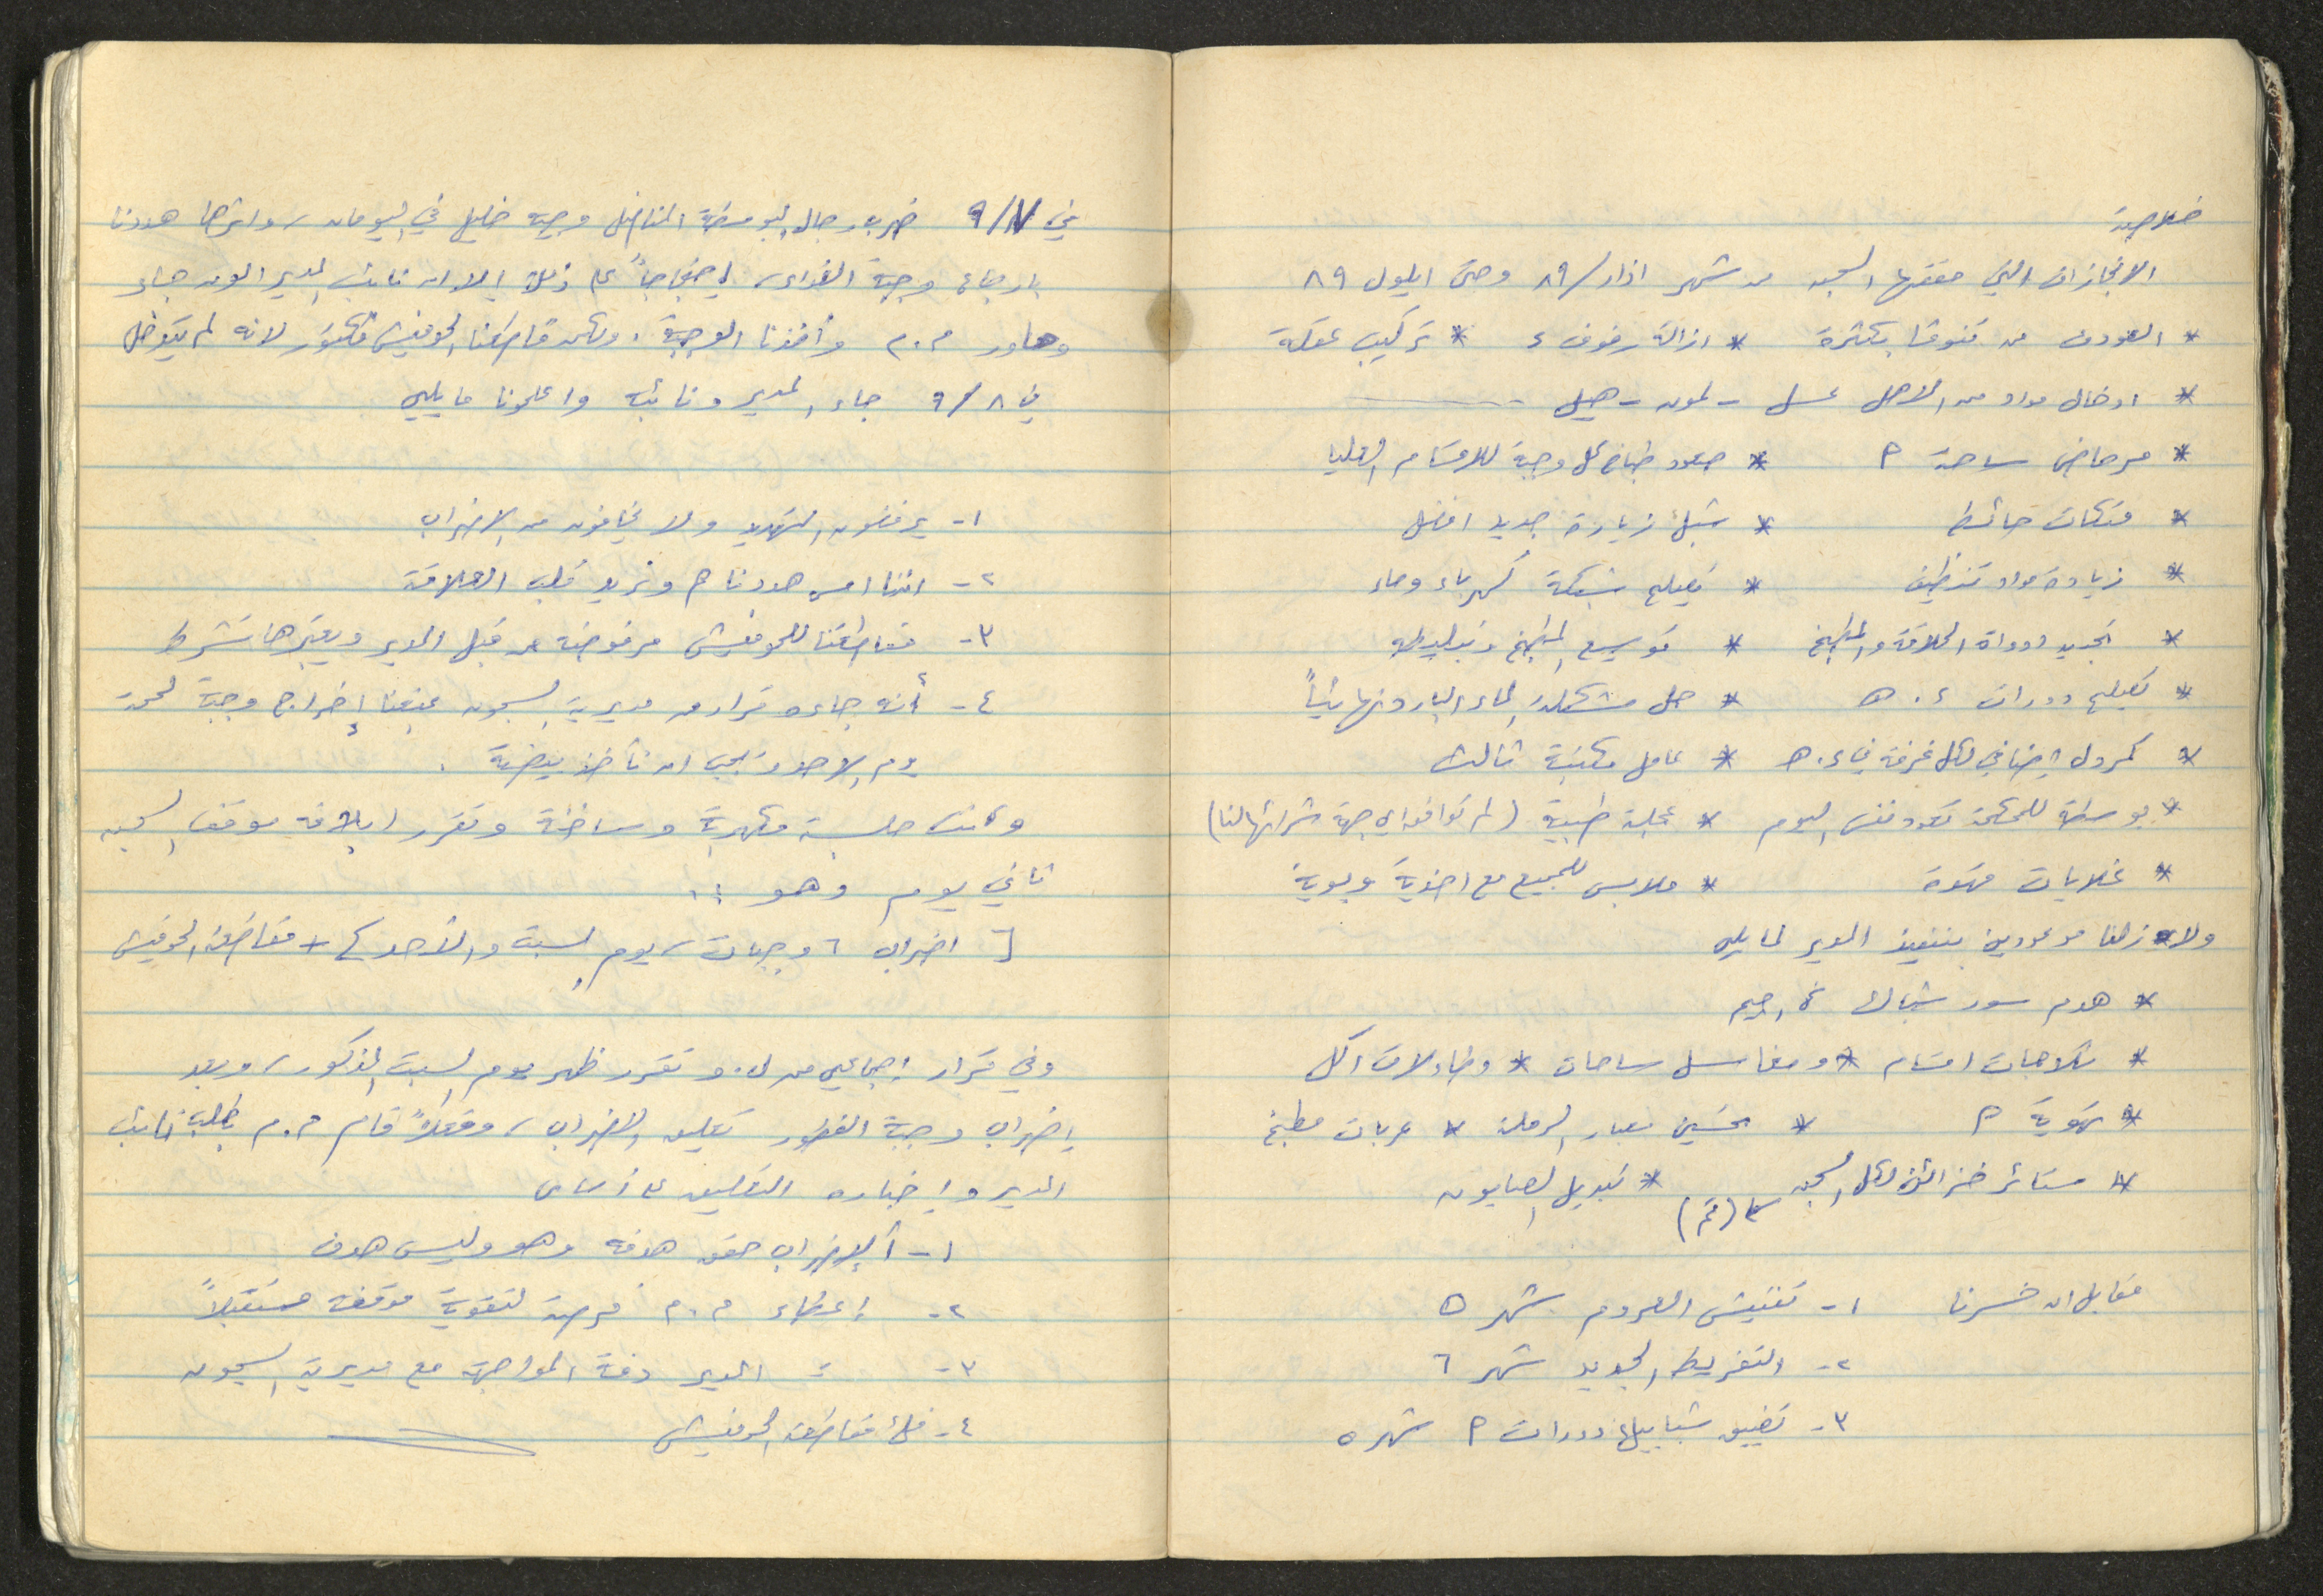 خلاصة
الانجازات التي حققها السجن من شهر اذار/٨٩ وحتى ايلول ٨٩
* العودة من قنوقا بكثرة * ازالة رفوف ٤ * تركيب عقلة
* ادخال مواد من الاهل عسل - لمون - هيل
* مرحاض ساحة م * صعود طباخ كل وجبة للاقسام العليا
* متكات حائط * شبك زيارة جديد افضل
* زيادة مواد تنظيف * تصليح شبكة كهرباء وماء
* تجديد ادواة الحلاقة والمطبخ * توسيع المطبخ وتبليطه
* تصليح دورات ٤، ه * حل مشكلة الماء البارد نهائياً
* كمردل اضافي لكل غرفة في ٤، ه * عامل مكتبة ثالث
* بوسطة للمحكمة تعود نفس اليوم * علبة طبية (لم توافق اي جهة شرائها لنا)
* غلايات قهوة * ملابس للجميع مع احذية وبوية
ولا زلنا موعودين بتنفيذ المدير لما يلي
* هدم سور شباك
* ثلاجات اقسام * ومغاسل ساحات * وطاولات اكل
* تهوية م * تحسين معبار الرملة * عربات مطبخ
* ستائر خزائن لكل السجن (تم) * تبديل الصابون
مقابل ان خسرنا ١- تفتيش العروم شهر ٥
٢- التفريط الجديد شهر ٦
٣- تضييق شبابيك دورات م شهر ٥
في ٩/٧ ضرب رجال البوسطة المناضل وجيه خليل في اليومان، واثرها هددنا
بارجاع وجبة الغداء، احتجاجاً على ذلك إلا ان نائب المدير العون جاء
وحاور م.م وأخذنا الوجبة. ولكن قاطعنا الحوفيش فكتور لانه لم يتدخل
في ٩/٨ جاء المدير ونائبه واعلمونا ما يلي
١- يرفضون التهديد ولا يخافون من الاضراب
٢- اننا امس هددناهم ونريد قلب العلاقة
٣- مقاطعتنا للحوفيش مرفوضة من قبل المدير ويعتبرها شرط
٤- أنه جاءه قرار من مديرية السجون بمنعنا إخراج وجبة لحمة
يوم الاحد ويجب ان نأخذ بيضة.
وكانت جلسة مكهربة وساخنة وتقرر ابلاغه موقف السجن
ثاني يوم وهو :.
[ اضراب ٦ وجبات، يوم السبت والأحد ] + مقاطعة الحوفيش
وفي قرار إجماعي من ل.و تقرر ظهر يوم السبت المذكور، وبعد
إضراب وجبة الفطور تعليق الاضراب، وفعلاً قام م.م بطلب نائب
المدير وإخباره التعليق على أساس
١- أ الإضراب حقق هدفه وهو وليس هدف
٢- إعطاء م.م فرصة لتقوية موقفه مستقبلاً
٣- = المدير دفة المواجهة مع مديرية السجون
٤- فك مقاطعة الحوفيش